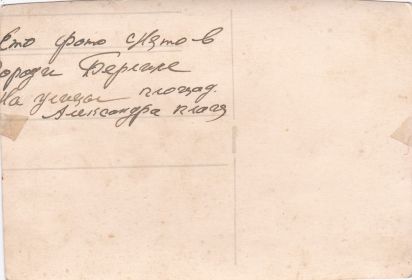 Ето фото снято в
городи Берлине
На улицы площад.
Александра плаця